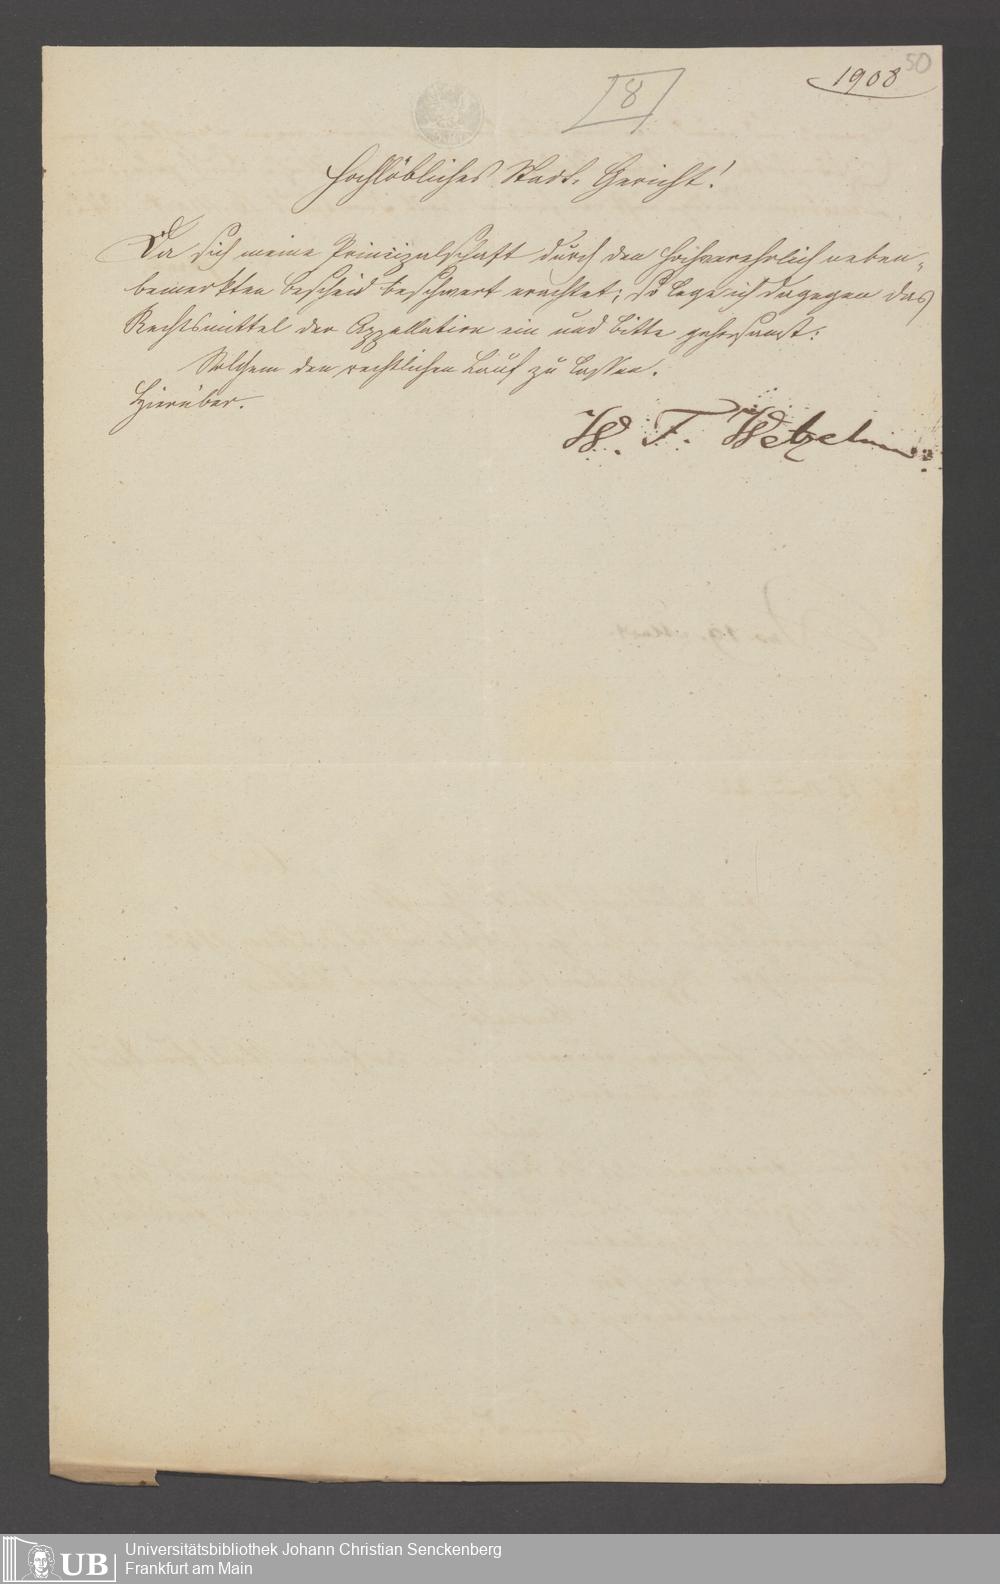 50
1908
8
Hochlöbliches Stadt-Gericht!
Da sich meine Principalschaft durch den hochverehrlich neben-
bemerkten Bescheid beschwert erachtet; so lege ich dagegen das
Rechtsmittel der Appellation ein und bitte gehorsamst:
Solchem den rechtlichen Lauf zu lassen.
Hierüber.
W. F.
UB
Universitätsbibliothek Johann Christian Senckenberg
Frankfurt am Main